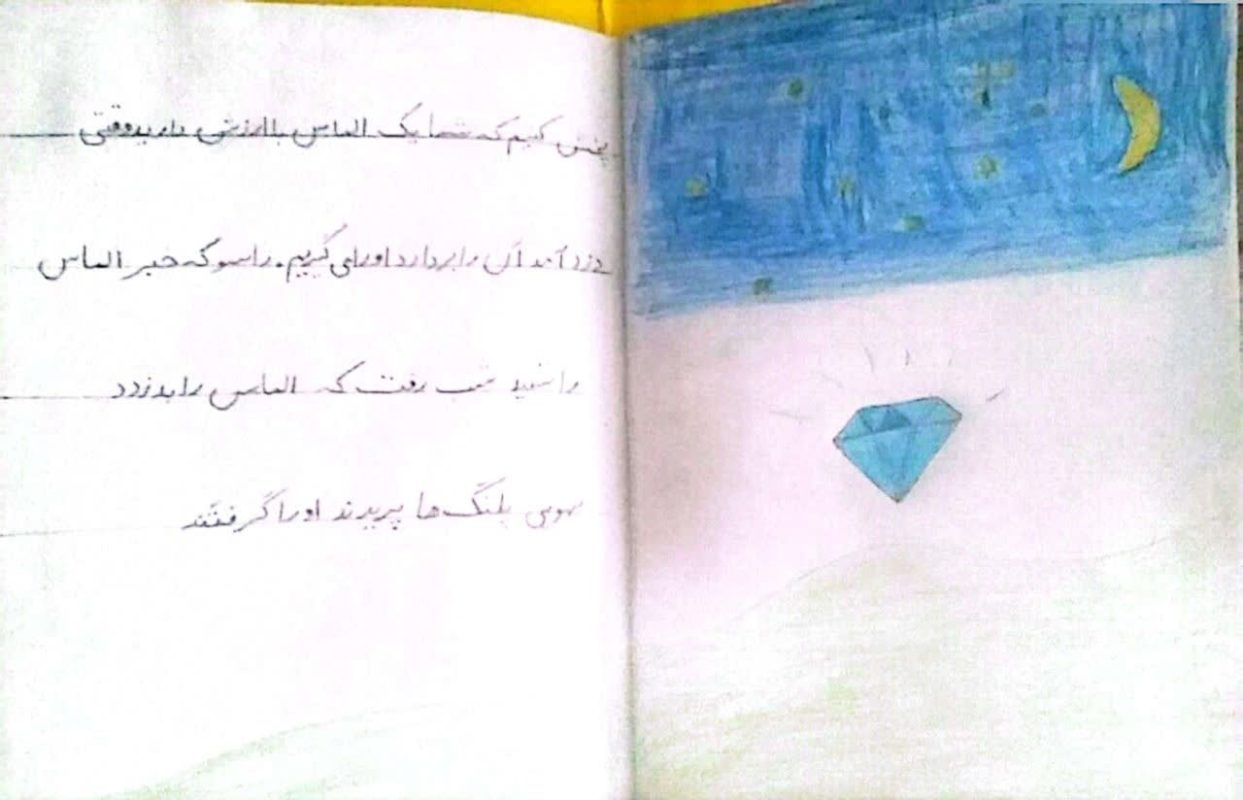 پخش کنیم که شما یک الماس باارزش دارید وقتی
دزد آمد آن را بردارد او را می گیریم. راسو که خبر الماس
را شنید شب رفت که الماس را بدزدد
یهویی پلنگ ها پریدند او را گرفتند